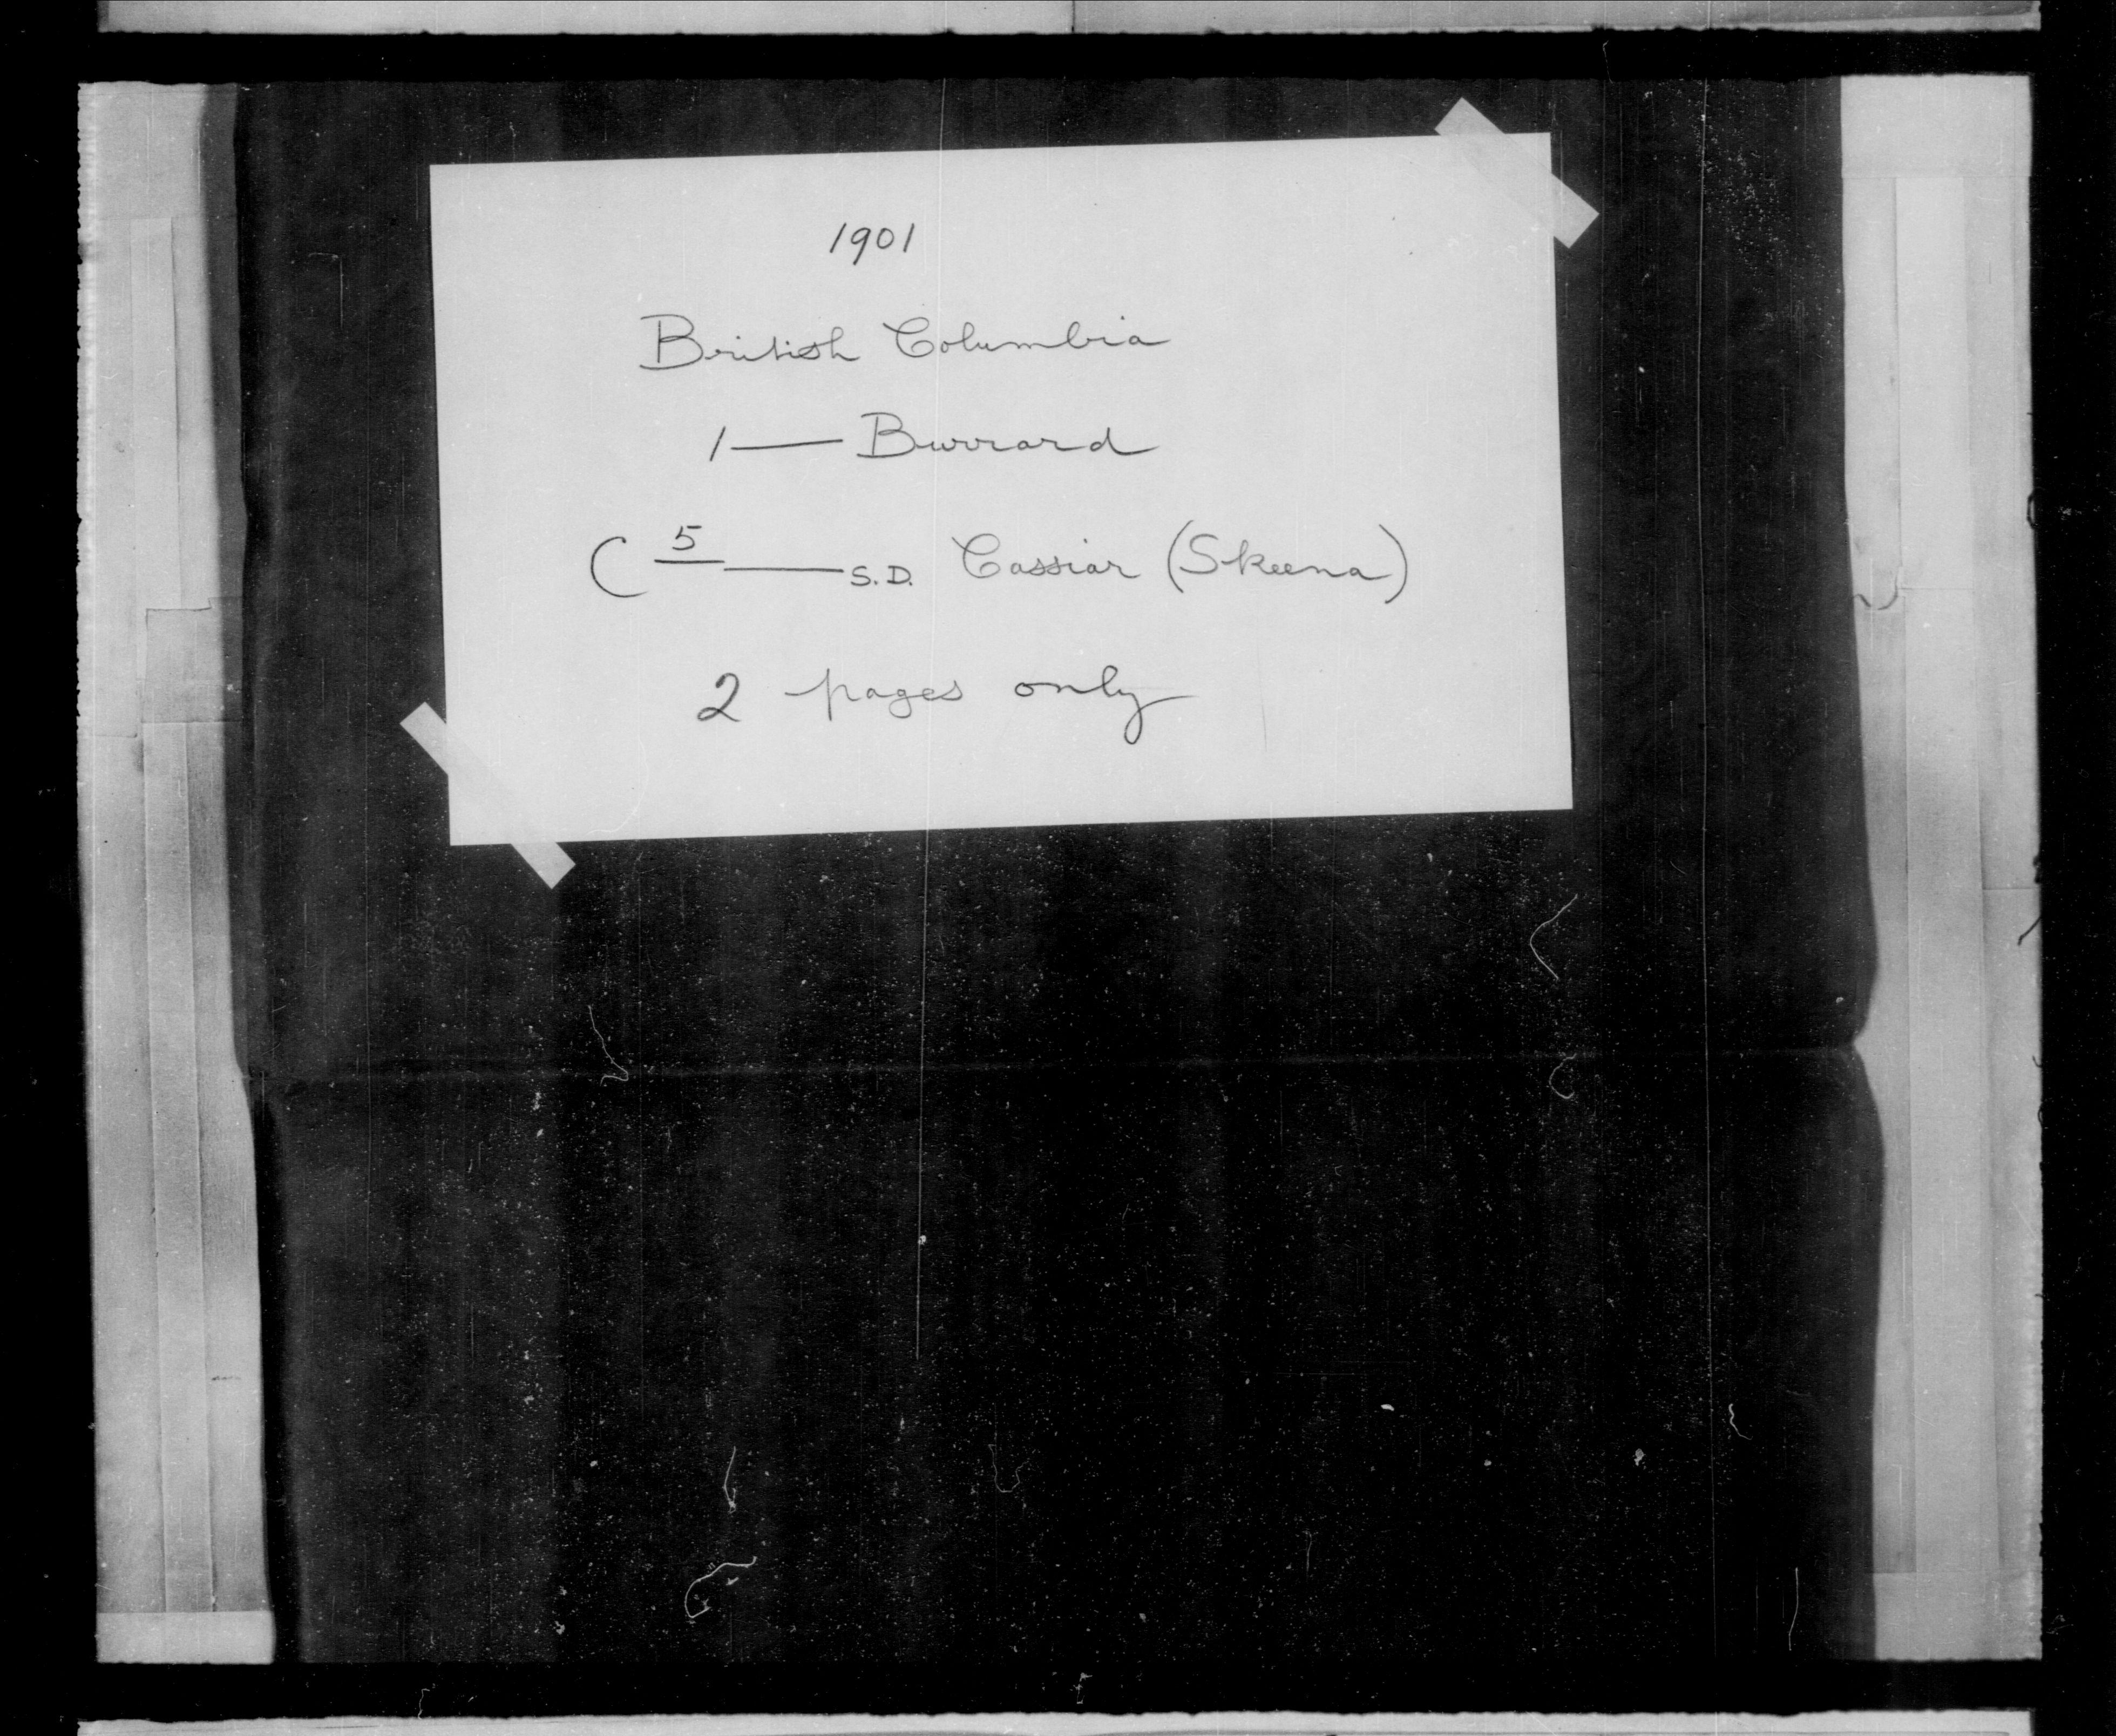 1901
British Columbia
1 — Burrard
( 5 — S.D. Cassiar (Skeena)
2 pages only